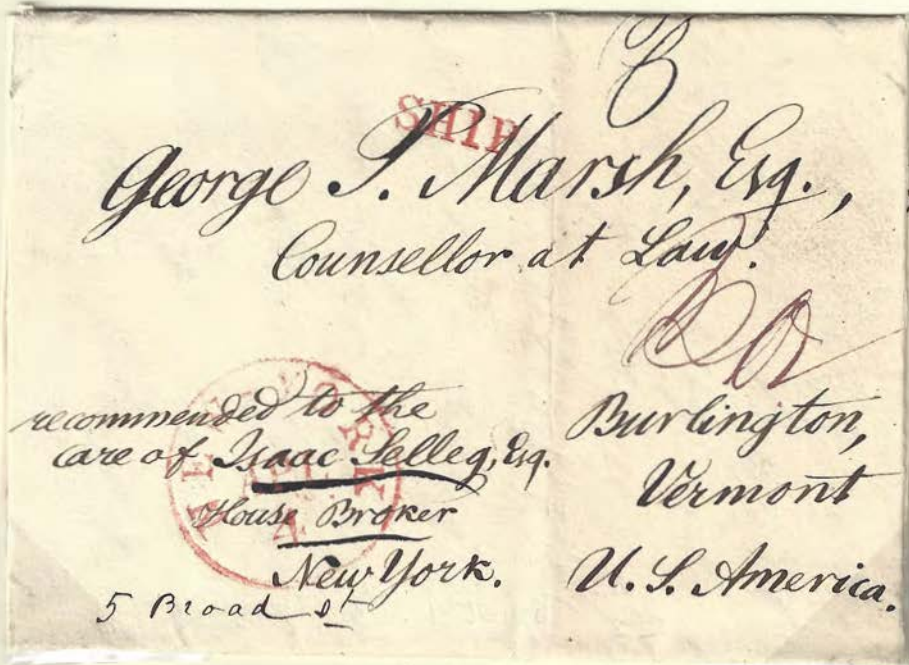 SHIP
George P. Marsh, Esq.,
Counsellor at Law.
recommended to the
care of Isaac Selleq, Esq.
House Broker
New York.
5 Broad st
Burlington,
Vermont
U. S. America.
NEW YORK